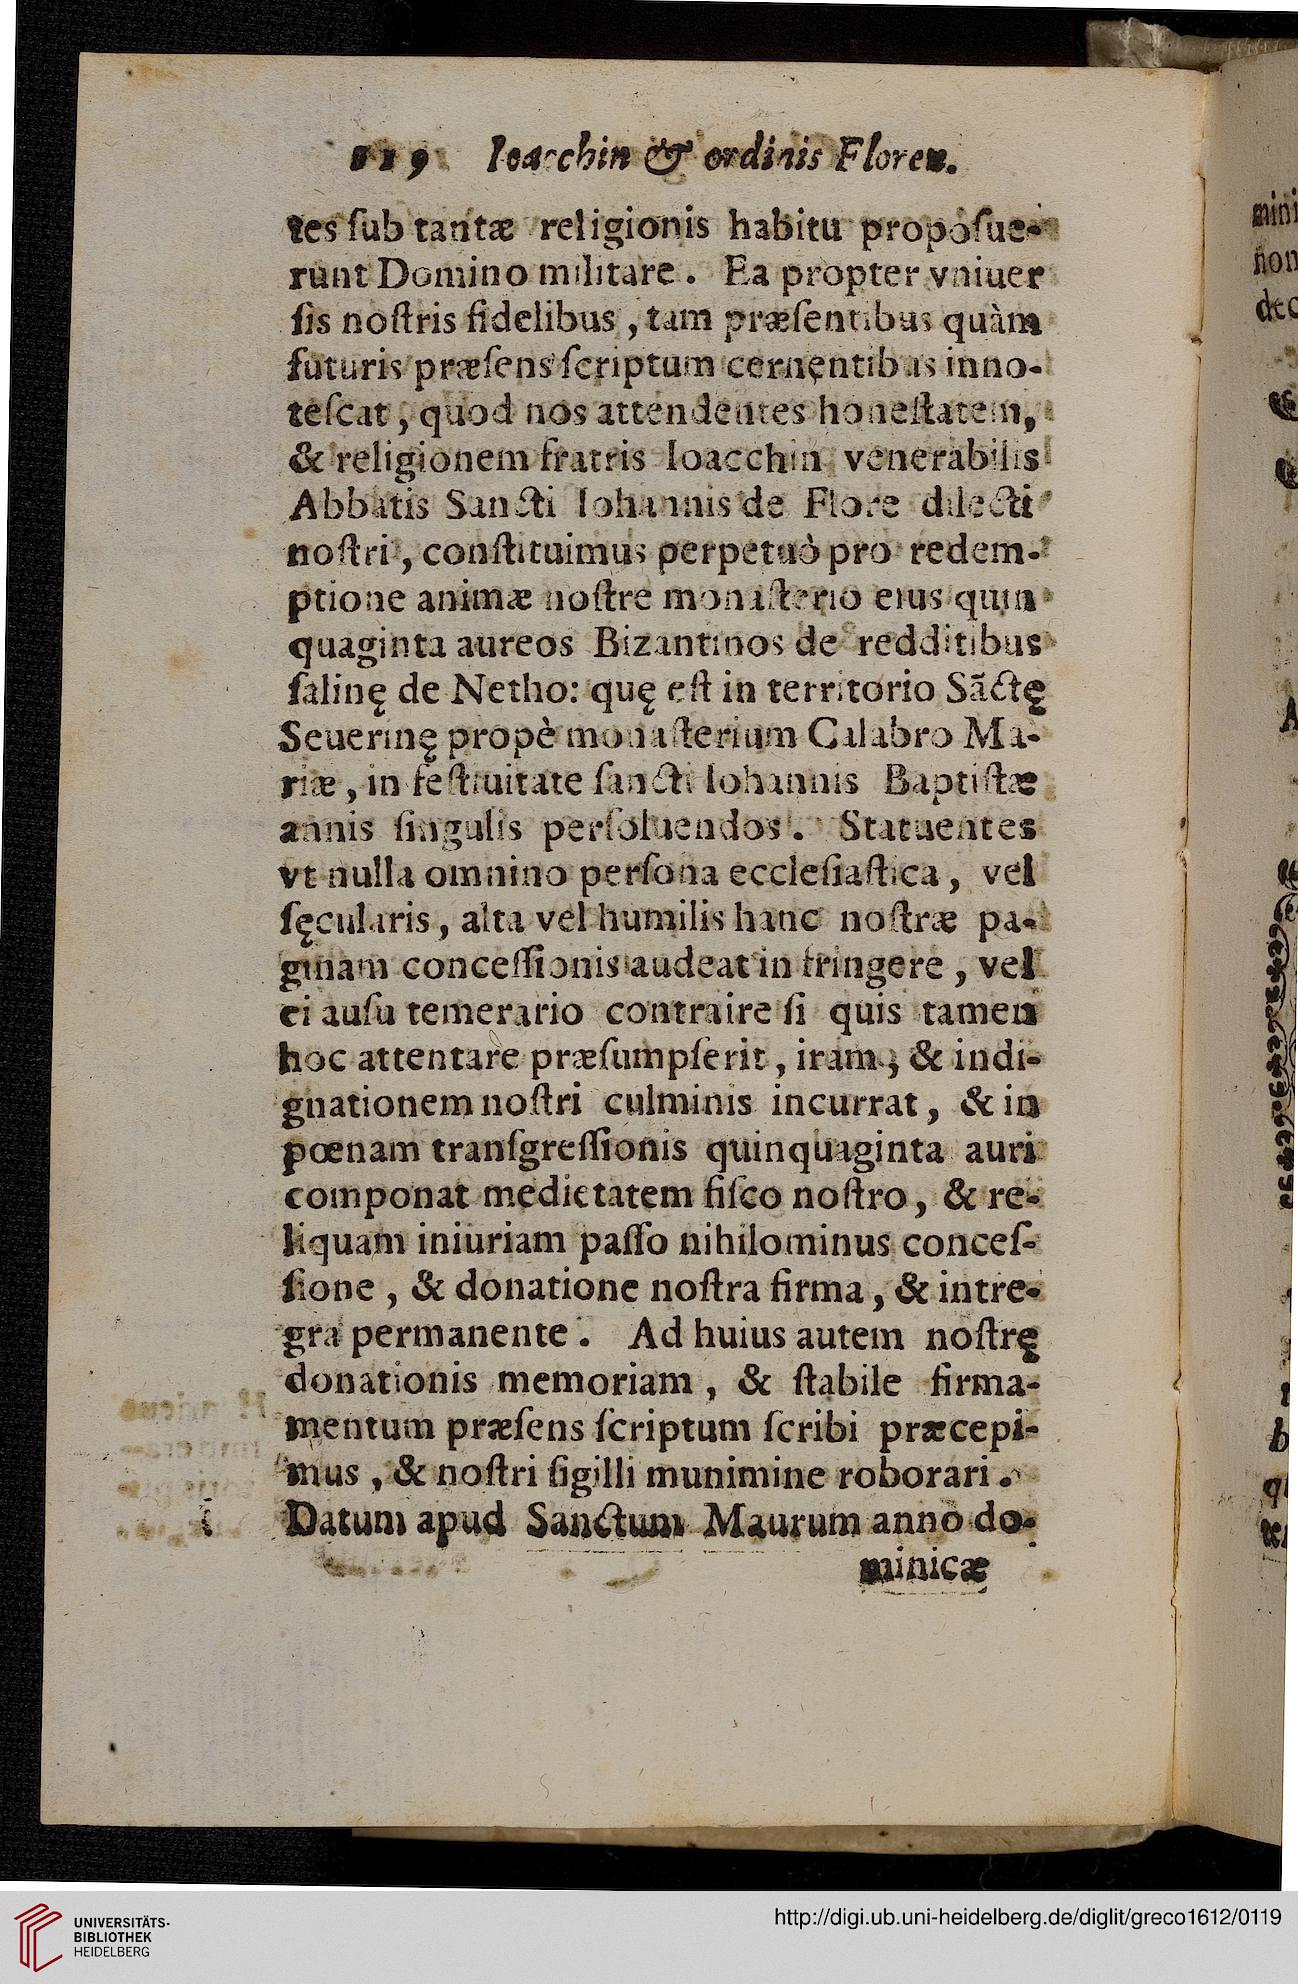 119 Ioacchin & ordinis Floren.
tes ſub tantæ religionis habitu propoſue-
runt Domino militare. Ea propter vniuer
ſis noſtris fidelibus, tam præſentibus quàm
futuris præſens ſcriptum cernentibus inno-
teſcat, quod nos attendentes honeſtatem,
& religionem fratris Ioacchin venerabilis
Abbatis Sancti Iohannis de Flore dilecti
noſtri, conſtituimus perpetuò pro redem-
ptione animæ noſtre monaſterio eius quin
quaginta aureos Bizantinos de redditibus
ſalinę de Netho: quę eſt in territorio Sãctę
Seuerinę propè monaſterium Calabro Ma-
riæ, in feſtiuitate ſancti Iohannis Baptiſtæ
annis ſingulis perſoluendos. Statuentes
vt nulla omnino perſona eccleſiaſtica, vel
ſęcularis, alta vel humilis hanc noſtræ pa-
ginam conceſſionis audeat in fringere, vel
ei auſu temerario contraire ſi quis tamen
hoc attentare præſumpſerit, iram, & indi-
gnationem noſtri culminis incurrat, & in
pœnam tranſgreſſionis quinquaginta auri
componat medietatem fiſco noſtro, & re-
liquam iniuriam paſſo nihilominus conceſ-
ſione, & donatione noſtra firma, & intre-
gra permanente. Ad huius autem noſtrę
donationis memoriam, & ſtabile firma-
mentum præſens ſcriptum ſcribi præcepi-
mus, & noſtri ſigilli munimine roborari.
Datum apud Sanctum Maurum anno do-
minicæ
UNIVERSITÄTS-
BIBLIOTHEK
HEIDELBERG
http://digi.ub.uni-heidelberg.de/diglit/greco1612/0119